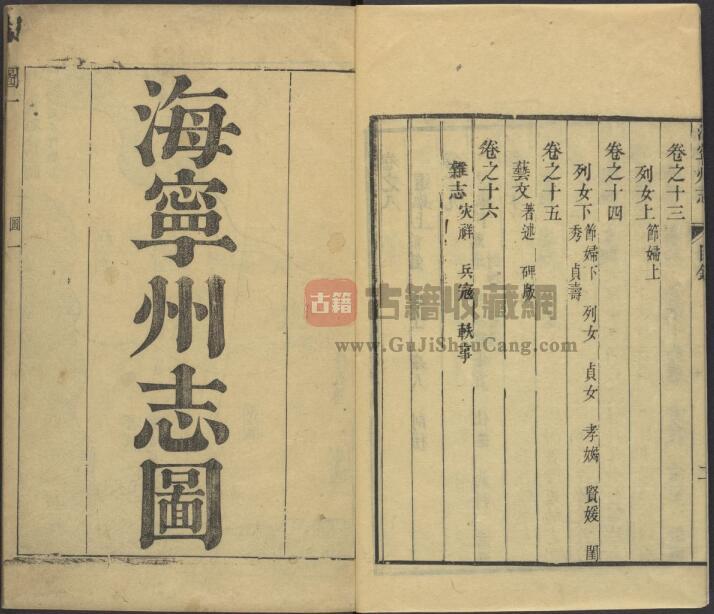 卷之十三
列女上 節婦上
卷之十四
列女下 節婦下 列女 貞女 孝婦 賢媛 閨秀 貞壽
卷之十五
藝文 著述 碑版
卷之十六
雜志 灾祥 兵寇 軼事
二
海寧州志圖
圖一
圖一
古籍
古籍收藏網
www.GuJiShouCang.com